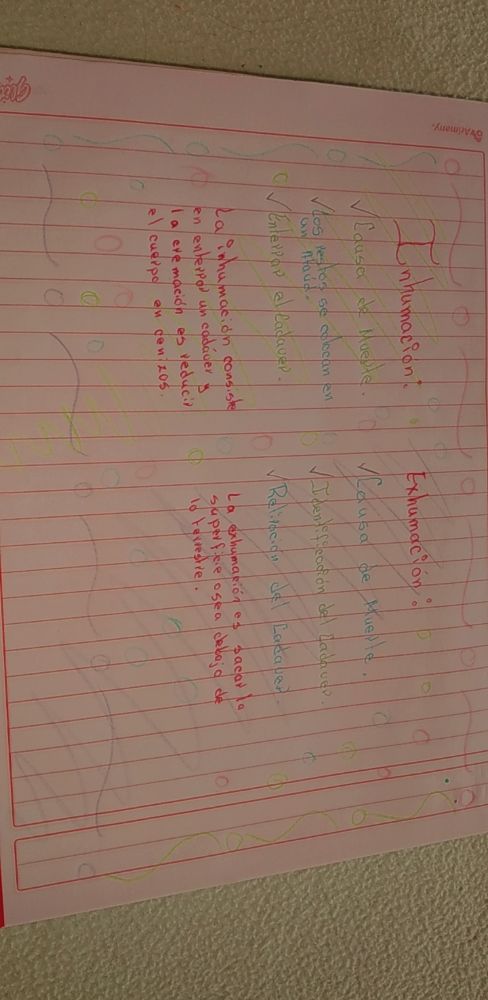 Arimany.
Inhumación:
✓ Causa de Muerte.
✓ Los restos se colocan en
un Ataúd.
✓ Enterrar el Cadaver.
La inhumación consiste
en enterrar un cadáver y
la cremación es reducir
el cuerpo en cenizas.
Exhumación:
✓ Causa de Muerte.
✓ Identificación del Cadaver
✓ Retiración del Cadaver.
La exhumación es sacar la
superficie osea debajo de
lo terrestre.